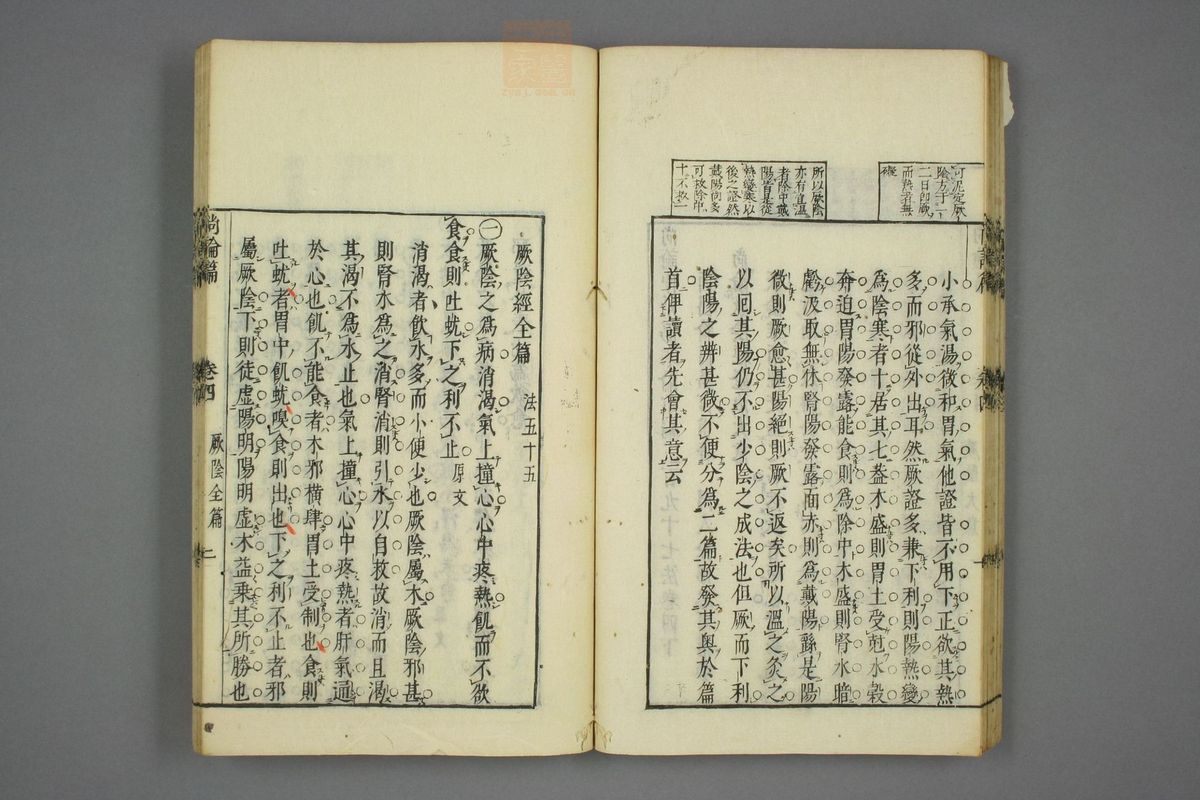 可泥定厥
陰方于一
二日卽厥
而熱者無
礙
所以厥陰
亦有宜溫
者除中戴
陽皆是從
熱變寒以
後之證然
戴陽尚多
可救除中
十不救一
小承氣湯微和胃氣他證皆不用下正欲其熱
多而邪從外出耳然厥證多兼下利則陽熱變
爲陰寒者十居其七葢木盛則胃土受尅水穀
奔迫胃陽發露能食則爲除中木盛則腎水暗
虧汲取無休腎陽發露面赤則爲戴陽繇是陽
微則厥愈甚陽絕則厥不返矣所以溫之灸之
以囘其陽仍不出少陰之成法也但厥而下利
陰陽之辨甚微不便分爲二篇故發其奧於篇
首俾讀者先會其意云
厥陰經全篇 法五十五
㊀厥陰之爲病消渴氣上撞心心中疼熱飢而不欲
食食則吐蚘下之利不止 原文
消渴者飲水多而小便少也厥陰屬木厥陰邪甚
則腎水爲之消腎消則引水以自救故消而且渴
其渴不爲水止也氣上撞心心中疼熱者肝氣通
於心也飢不能食者木邪橫肆胃土受制也食則
吐蚘者胃中飢蚘嗅食則出也下之利不止者邪
屬厥陰下則徒虛陽明陽明虛木益乘其所勝也
尚論篇 卷四 厥陰全篇 二